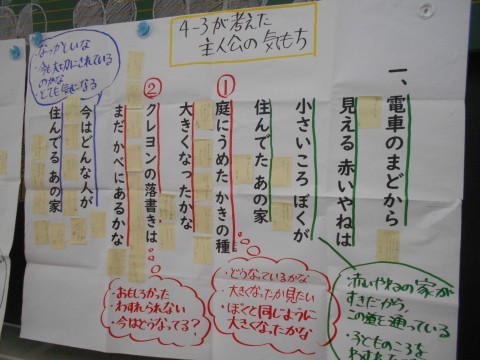 4-3が考えた
主人公の気もち
一、電車のまどから
見える 赤いやねは
小さいころ ぼくが
住んでた あの家
①
庭にうめた かきの種
大きくなったかな
②
クレヨンの落書きは
まだ かべにあるかな
今はどんな人が
住んでる あの家
なつかしいな
・今も大切にされている
のかな
とても気になる
・おもしろかった
・わすれられない
・今はどうなってる？
・どうなっているかな
・大きくなったか見たい
・ぼくと同じように
大きくなったかな
・赤いやねの家が
すきだから、
この道を通っている